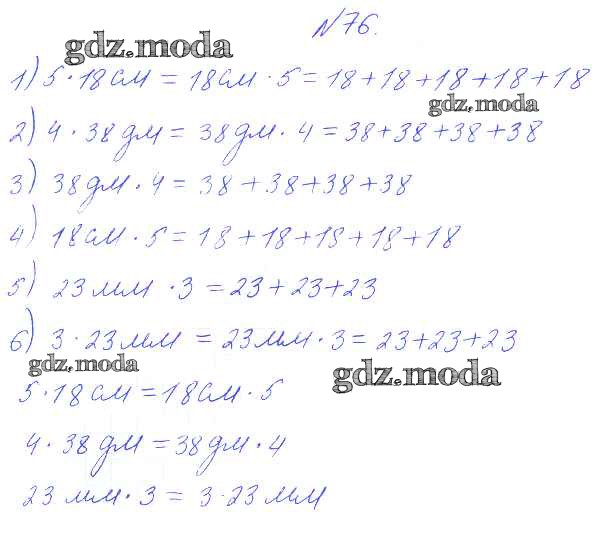 №76.
gdz.moda
1) 5·18см = 18см·5 = 18+18+18+18+18
gdz.moda
2) 4·38дм = 38дм·4 = 38+38+38+38
3) 38дм·4 = 38+38+38+38
4) 18см·5 = 18+18+18+18+18
5) 23мм·3 = 23+23+23
6) 3·23мм = 23мм·3 = 23+23+23
gdz.moda
gdz.moda
5·18см = 18см·5
4·38дм = 38дм·4
23мм·3 = 3·23мм